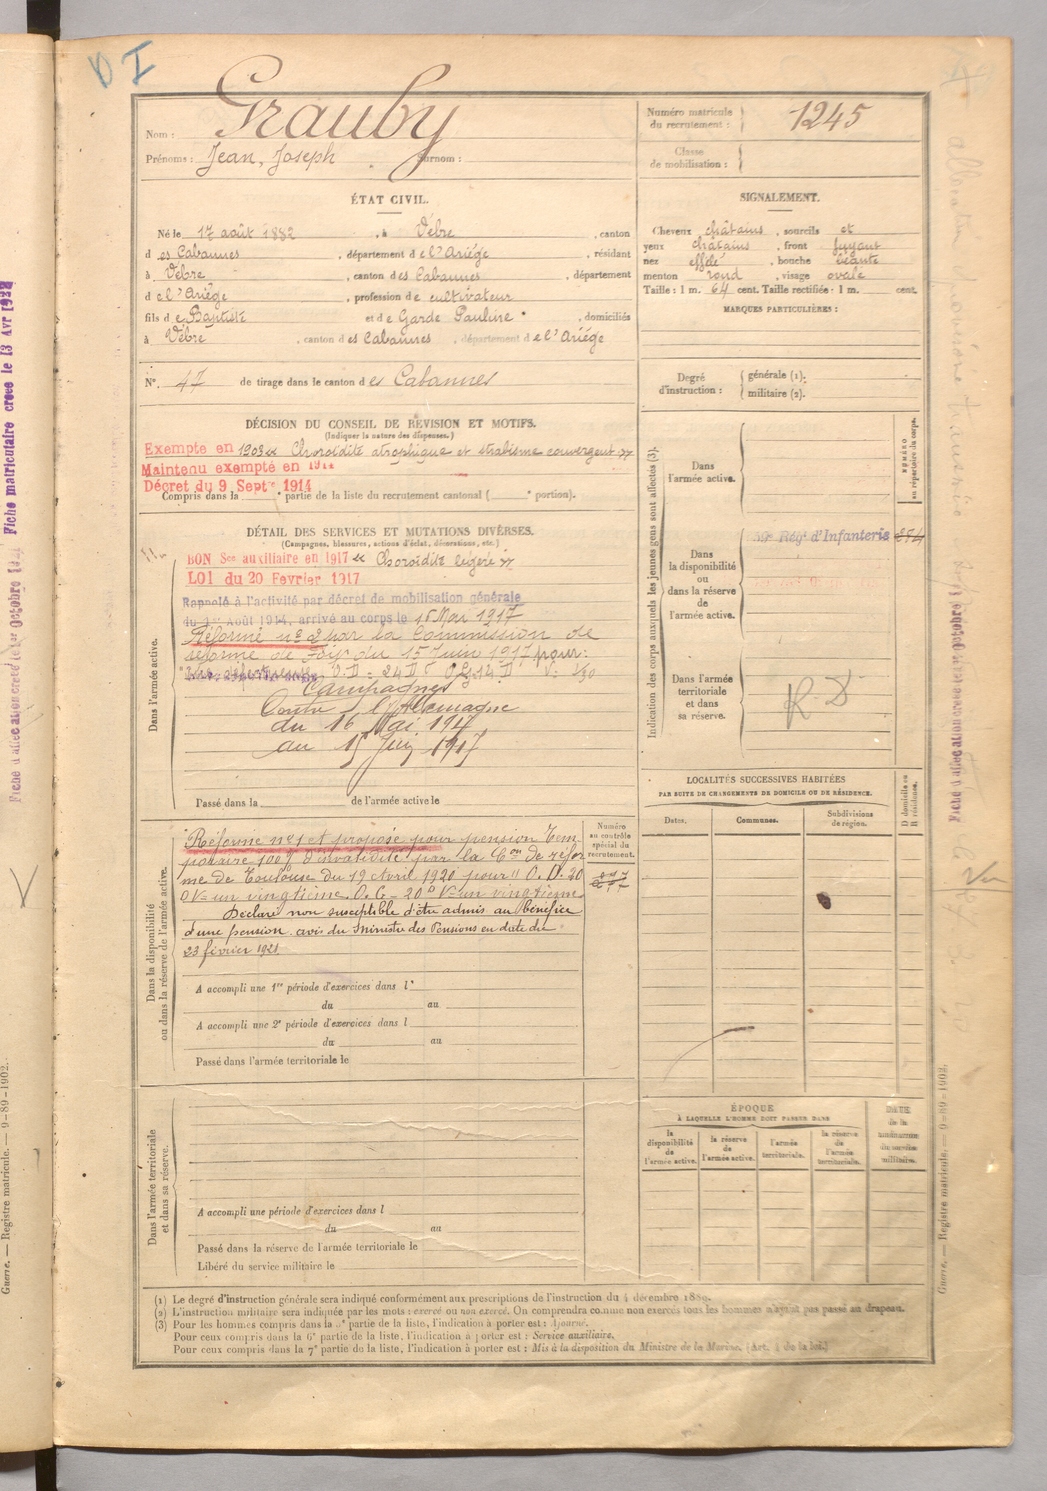 D I
Nom : Grauby
Prénoms : Jean, Joseph . Surnom :
Numéro matricule du recrutement : 1245
Classe de mobilisation :
ÉTAT CIVIL.
Né le 17 août 1882, à Vèbre, canton
des Cabannes, département de l'Ariége, résidant
à Vèbre, canton des Cabannes, département
de l'Ariége, profession de cultivateur
fils de Baptiste et de Garde Pauline, domiciliés
à Vèbre, canton des Cabannes, département de l'Ariége
N° 47 de tirage dans le canton des Cabannes
SIGNALEMENT.
Cheveux châtains, sourcils et
yeux châtains, front fuyant
nez effilé, bouche béante
menton rond, visage ovale
Taille : 1 m. 64 cent. Taille rectifiée : 1 m. cent.
MARQUES PARTICULIÈRES :
Degré d'instruction : générale (1). militaire (2).
DÉCISION DU CONSEIL DE RÉVISION ET MOTIFS.
(Indiquer la nature des dispenses.)
Exempté en 1903 « Choroïdite atrophique et strabisme convergent »
Maintenu exempté en 1914
Décret du 9 Septre 1914
Compris dans la e partie de la liste du recrutement cantonal ( e portion).
DÉTAIL DES SERVICES ET MUTATIONS DIVERSES.
(Campagnes, blessures, actions d'éclat, décorations, etc.)
Dans l'armée active.
BON Sce auxiliaire en 1917 « Choroïdite légère »
LOI du 20 Fevrier 1917
Rappelé à l'activité par décret de mobilisation générale
du 1er Août 1914, arrivé au corps le 16 Mai 1917
Réformé n° 2 par la Commission de
réforme de Foix du 15 Juin 1917 pour:
Campagnes
Contre l'Allemagne
du 16 Mai 1917
au 15 Juin 1917
Passé dans la de l'armée active le
Indication des corps auxquels les jeunes gens sont affectés (3).
NUMÉRO au répertoire du corps.
Dans l'armée active.
Dans la disponibilité ou dans la réserve de l'armée active.
Régt d'Infanterie
Dans l'armée territoriale et dans sa réserve.
R. D
LOCALITÉS SUCCESSIVES HABITÉES
PAR SUITE DE CHANGEMENTS DE DOMICILE OU DE RÉSIDENCE.
Dates. Communes. Subdivisions de région. D domicile ou R résidence.
Dans la disponibilité ou dans la réserve de l'armée active.
Numéro au contrôle spécial du recrutement.
Réformé n° 1 et proposé pour pension tem
poraire 100% d'invalidité par la Con de réfor
me de Toulouse du 19 Avril 1920 pour
V= un vingtième O. G = 20° V= un vingtième
Déclaré non susceptible d'être admis au bénéfice
d'une pension. avis du Ministre des Pensions en date du
23 février 1921
A accompli une 1re période d'exercices dans l
du au
A accompli une 2e période d'exercices dans l
du au
Passé dans l'armée territoriale le
Dans l'armée territoriale et dans sa réserve.
A accompli une période d'exercices dans l
du au
Passé dans la réserve de l'armée territoriale le
Libéré du service militaire le
ÉPOQUE
À LAQUELLE L'HOMME DOIT PASSER DANS
la disponibilité de l'armée active. la réserve de l'armée active. l'armée territoriale. la réserve de l'armée territoriale.
DATE de la libération du service militaire.
(1) Le degré d'instruction générale sera indiqué conformément aux prescriptions de l'instruction du 4 décembre 1889.
(2) L'instruction militaire sera indiquée par les mots : exercé ou non exercé. On comprendra comme non exercés tous les hommes n'ayant pas passé au drapeau.
(3) Pour les hommes compris dans la 5e partie de la liste, l'indication à porter est : Ajourné.
Pour ceux compris dans la 6e partie de la liste, l'indication à porter est : Service auxiliaire.
Pour ceux compris dans la 7e partie de la liste, l'indication à porter est : Mis à la disposition du Ministre de la Marine. (Art. 4 de la loi.)
Guerre. — Registre matricule. — 9-89-1902.
Guerre. — Registre matricule. — 9-89-1902.